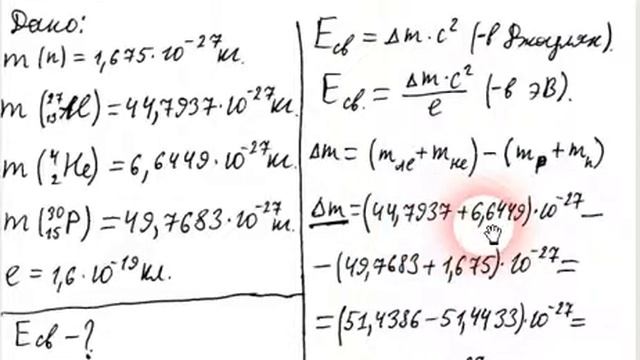 Дано:
m(n)=1,675·10⁻²⁷кг.
m(²⁷₁₃Al)=44,7937·10⁻²⁷кг.
m(⁴₂He)=6,6449·10⁻²⁷кг.
m(³⁰₁₅P)=49,7683·10⁻²⁷кг.
e=1,6·10⁻¹⁹кл.
Eсв-?
Eсв=Δm·c² (-в Джоулях).
Eсв.=Δm·c²/e (-в эВ).
Δm=(mAl+mHe)-(mP+mn)
Δm=(44,7937+6,6449)·10⁻²⁷-
-(49,7683+1,675)·10⁻²⁷=
=(51,4386-51,4433)·10⁻²⁷=